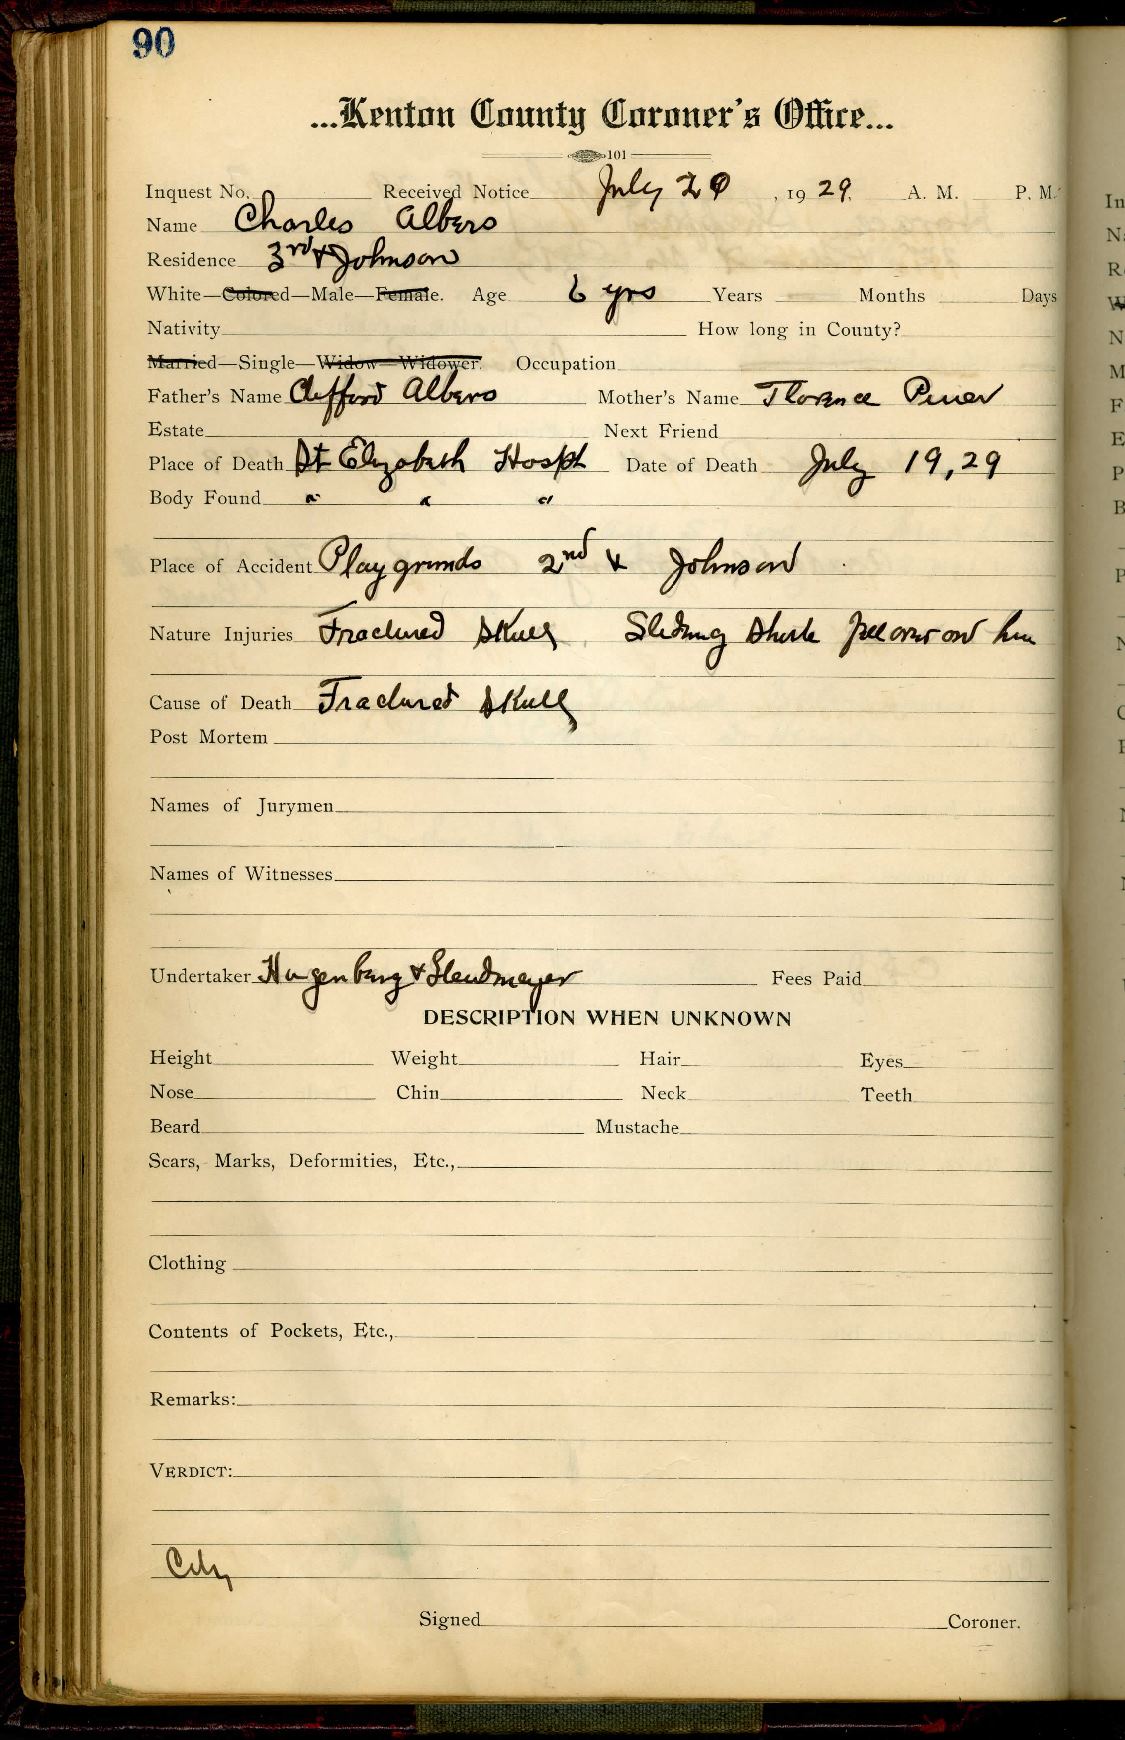 90
...Kenton County Coroner's Office...
101
Inquest No. Received Notice July 20, 1929. A. M. P. M.
Name Charles Albers
Residence 3rd & Johnson
White—Colored—Male—Female. Age 6 yrs Years Months Days
Nativity How long in County?
Married—Single—Widow—Widower. Occupation
Father's Name Clifford Albers Mother's Name Florence Piner
Estate Next Friend
Place of Death St Elizabeth Hosph Date of Death July 19, 29
Body Found " " "
Place of Accident Play grounds 2nd & Johnson
Nature Injuries Fractured Skull Sliding fell over on him
Cause of Death Fractured Skull
Post Mortem
Names of Jurymen
Names of Witnesses
Undertaker &
Fees Paid
DESCRIPTION WHEN UNKNOWN
Height Weight Hair Eyes
Nose Chin Neck Teeth
Beard Mustache
Scars, Marks, Deformities, Etc.,
Clothing
Contents of Pockets, Etc.,
Remarks:
VERDICT:
City
Signed Coroner.